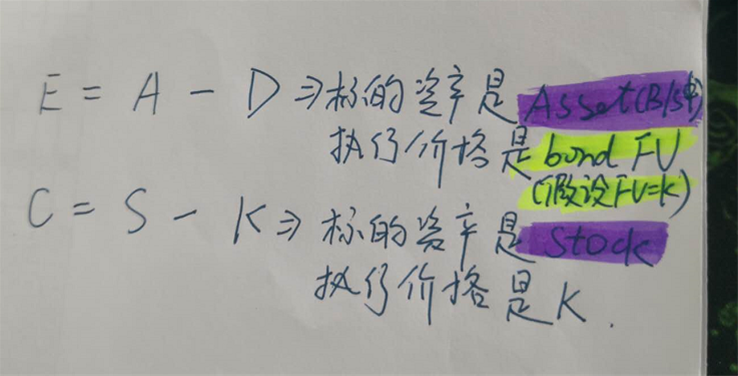 E = A - D ⇒ 标的资产是 Asset(B/S中)
执行价格是 bond FV
(假设FV=K)
C = S - K ⇒ 标的资产是 Stock
执行价格是 K.